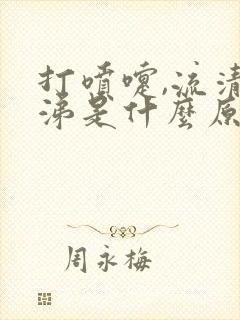 打噴嚏,流清
涕是什麼原
周永梅